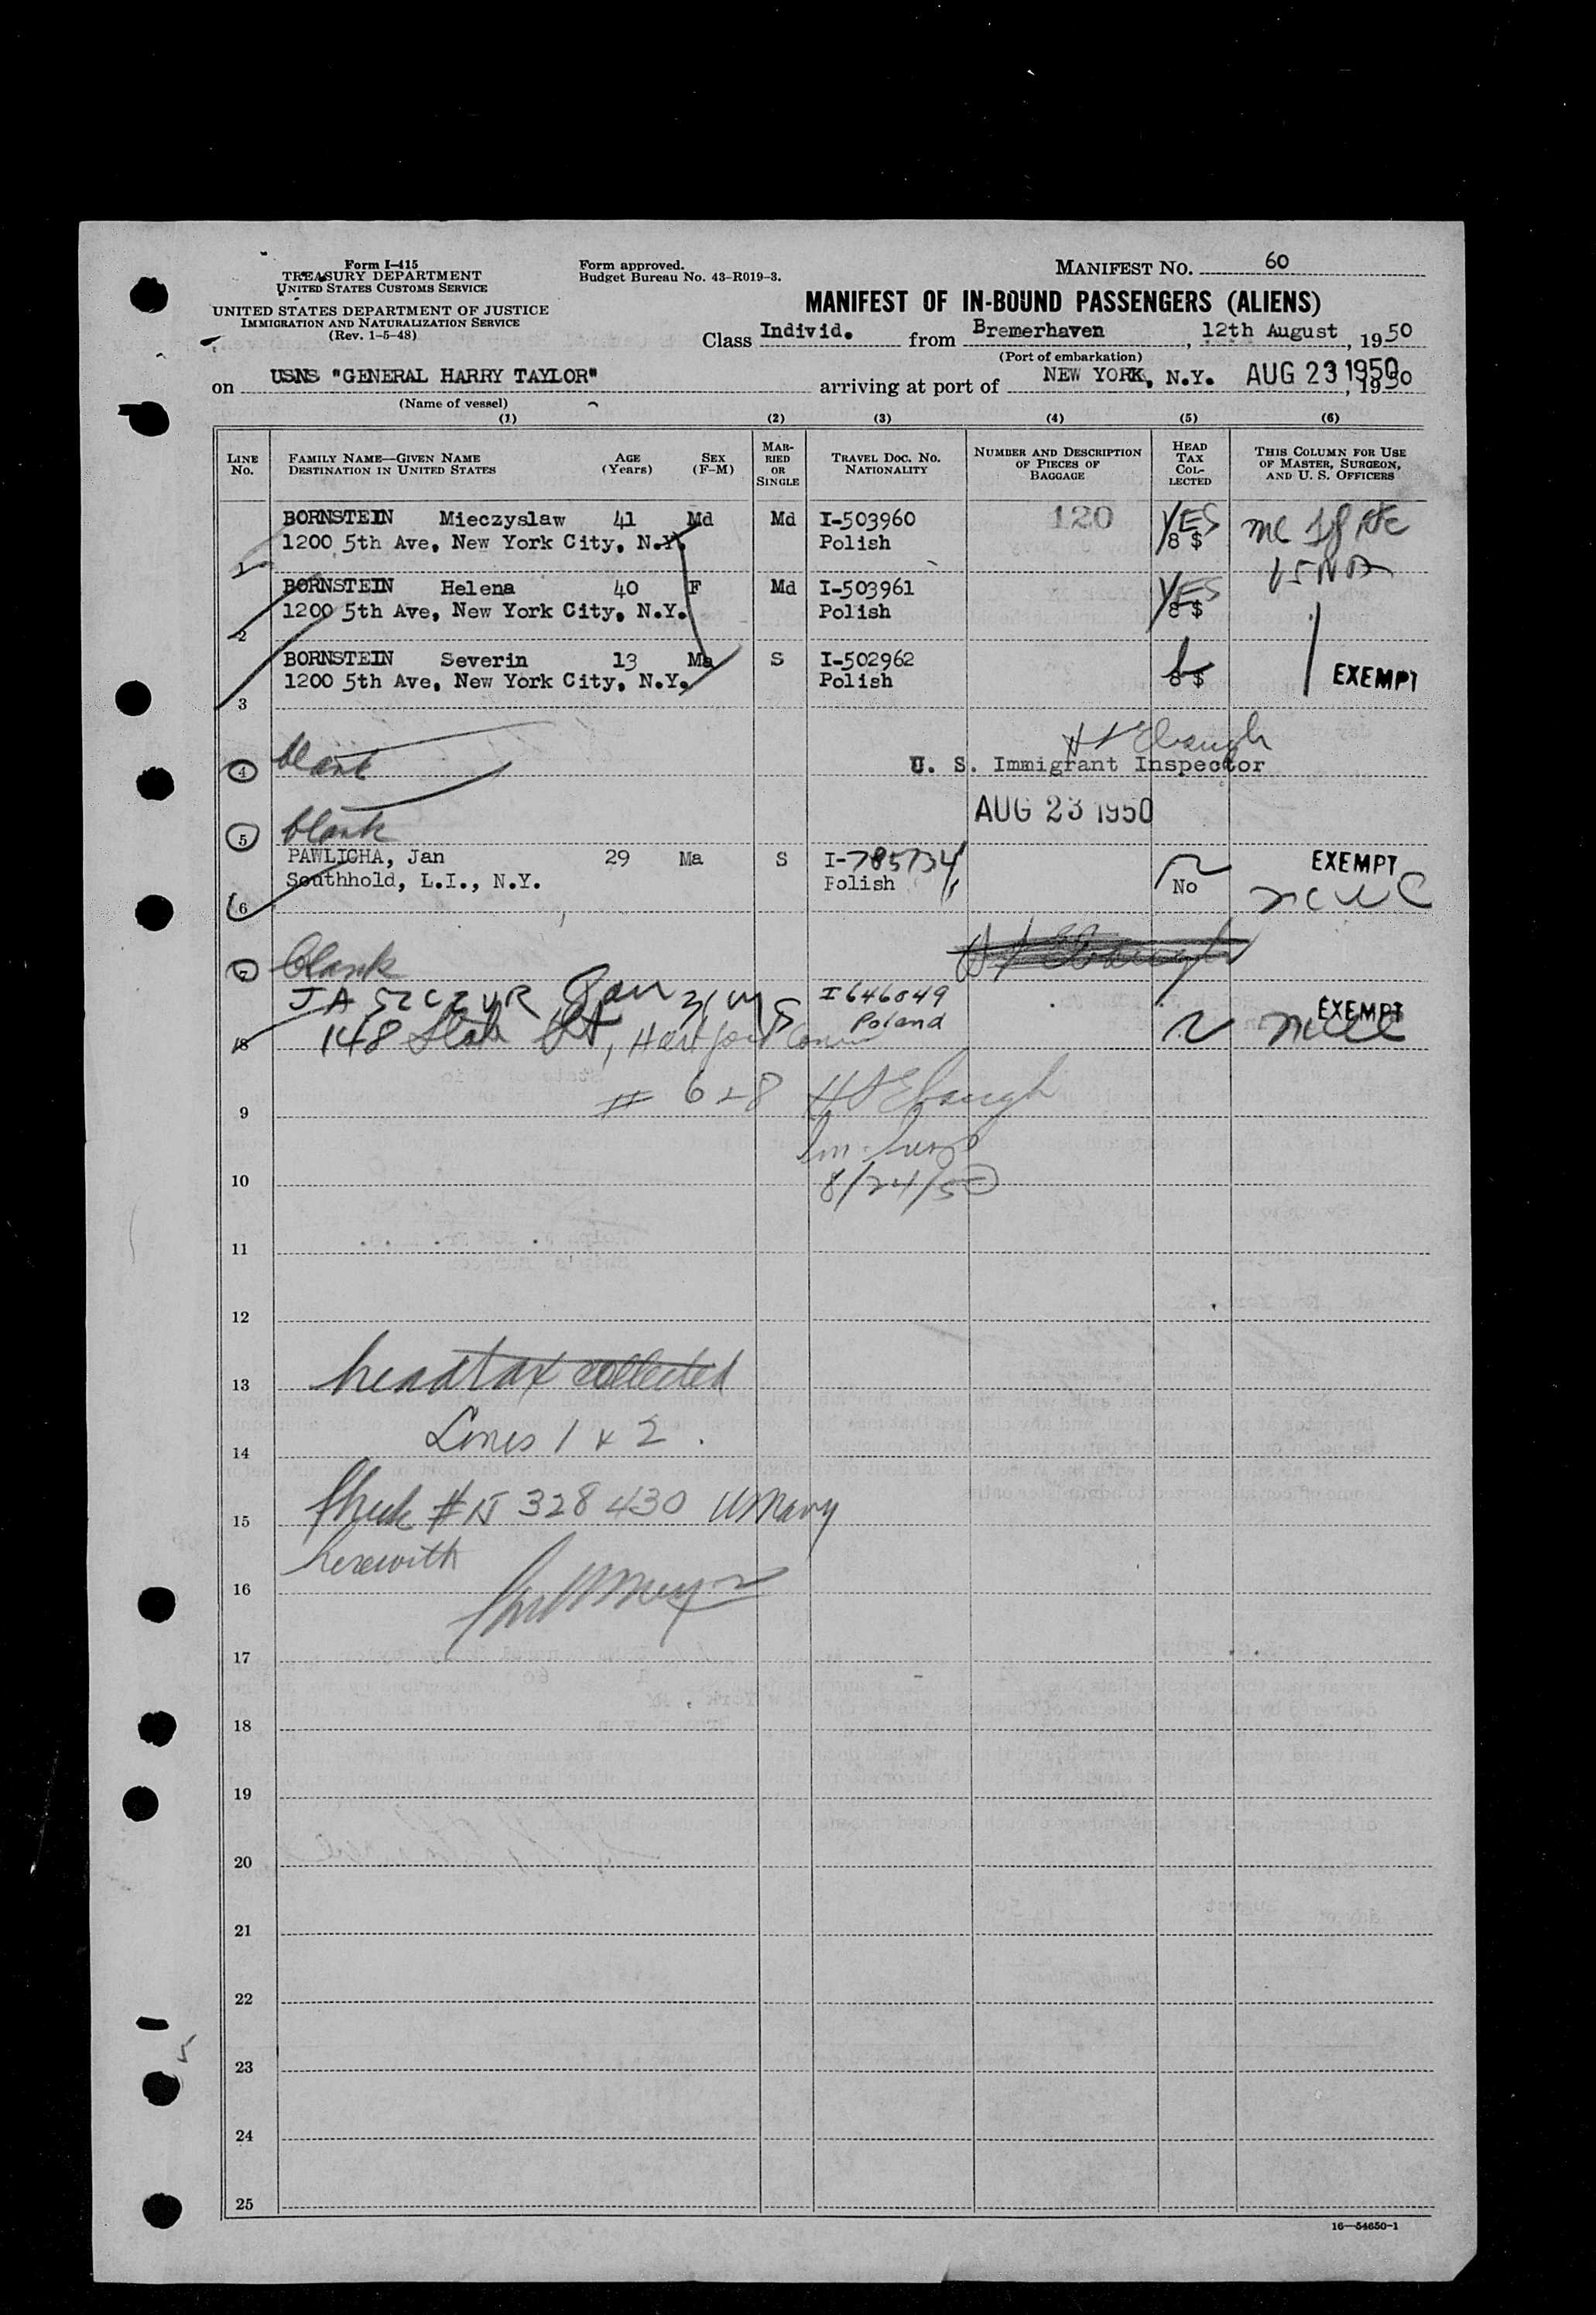 Form I-415
TREASURY DEPARTMENT
UNITED STATES CUSTOMS SERVICE
UNITED STATES DEPARTMENT OF JUSTICE
IMMIGRATION AND NATURALIZATION SERVICE
(Rev. 1-5-48)
Form approved.
Budget Bureau No. 43-R019-3.
MANIFEST NO. 60
MANIFEST OF IN-BOUND PASSENGERS (ALIENS)
Class Individ. from Bremerhaven, 12th August, 1950
(Port of embarkation)
on USNS "GENERAL HARRY TAYLOR" arriving at port of NEW YORK, N.Y. AUG 23 1950, 1950
(Name of vessel)
(1) (2) (3) (4) (5) (6)
LINE No. FAMILY NAME—GIVEN NAME DESTINATION IN UNITED STATES AGE (Years) SEX (F-M) MARRIED OR SINGLE TRAVEL DOC. NO. NATIONALITY NUMBER AND DESCRIPTION OF PIECES OF BAGGAGE HEAD TAX COLLECTED THIS COLUMN FOR USE OF MASTER, SURGEON, AND U. S. OFFICERS
BORNSTEIN Mieczyslaw 41 Md Md I-503960 120 YES
1200 5th Ave, New York City, N.Y. Polish 8 $
1
BORNSTEIN Helena 40 F Md I-503961 YES
1200 5th Ave, New York City, N.Y. Polish 8 $
2
BORNSTEIN Severin 13 Ma S I-502962
1200 5th Ave, New York City, N.Y. Polish 8 $ EXEMPT
3
blank
4 U. S. Immigrant Inspector
AUG 23 1950
5 blank
PAWLICHA, Jan 29 Ma S I-785734 EXEMPT
Southhold, L.I., N.Y. Polish No
6
7 blank
JASZCZUR Jan 31 M S I 646049 EXEMPT
148 State St, Hartford Conn Poland
8
# 628 H S Ebaugh
9
8/24/50
10
11
12
13 headtax collected
14 Lines 1 & 2.
15 Check # N 328430 US Navy
herewith
16
17
18
19
20
21
22
23
24
25
16—54650-1